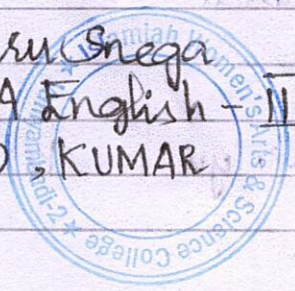 ru Snega
A English - II
D, KUMAR
Islamiah Women's Arts & Science College